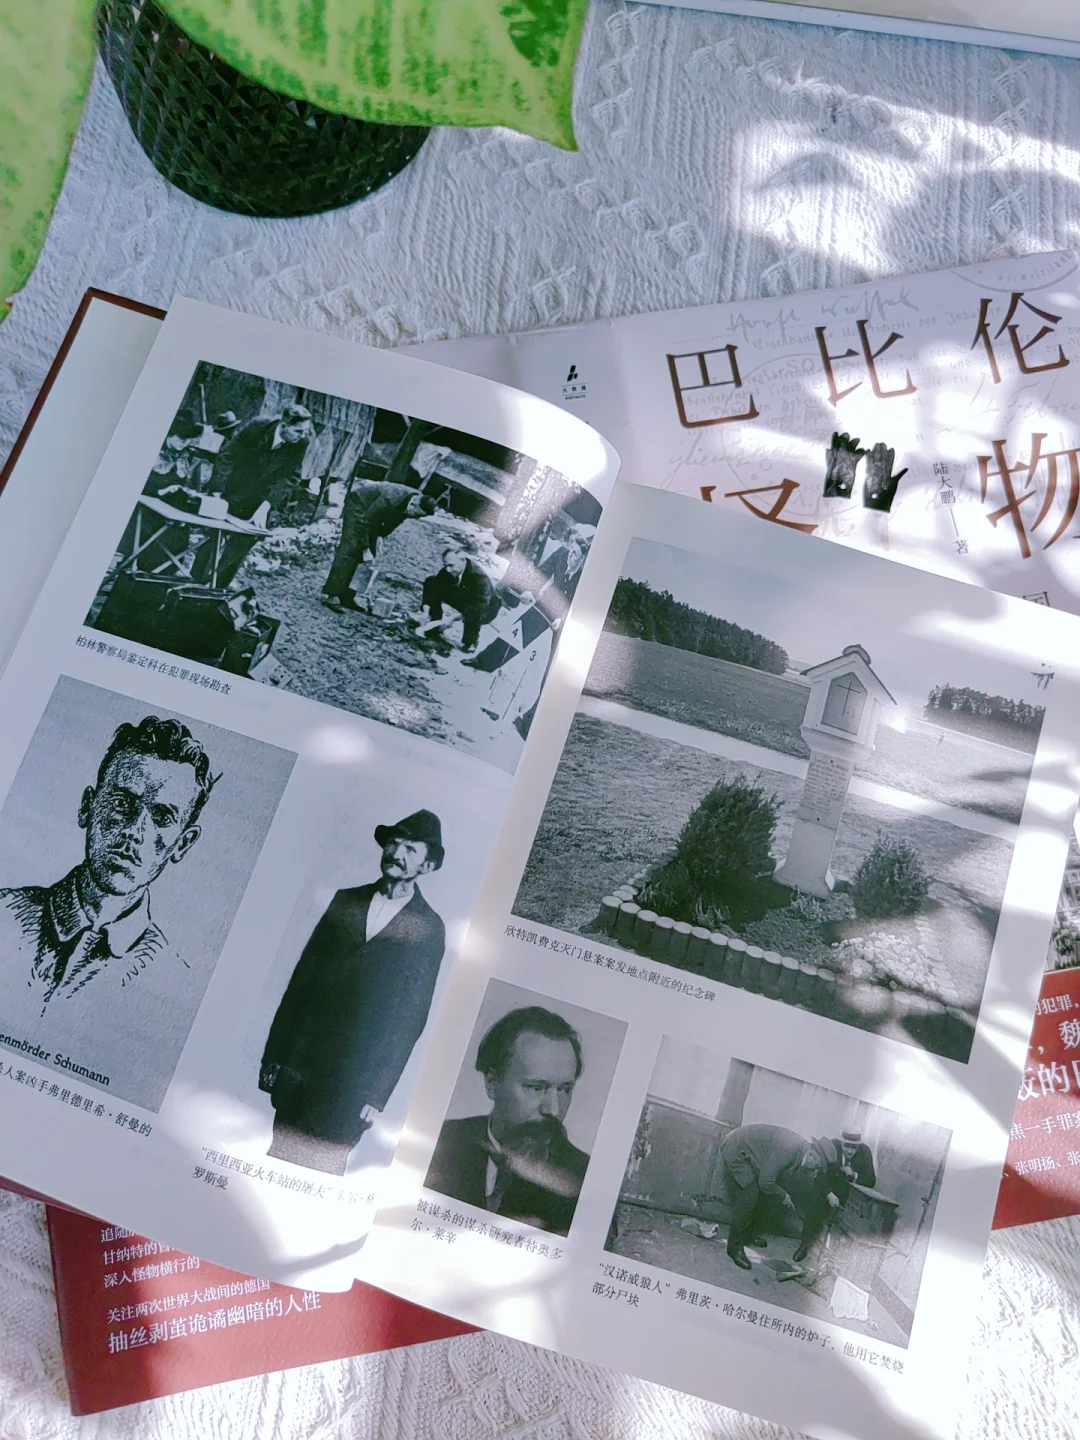 巴比伦
怪物
陆大鹏
著
国
柏林警察局鉴定科在犯罪现场勘查
enmörder Schumann
人案凶手弗里德里希·舒曼的
“西里西亚火车站的屠夫”卡尔·格
罗斯曼
欣特凯费克灭门悬案案发地点附近的纪念碑
被谋杀的谋杀研究者特奥多
尔·莱辛
“汉诺威狼人”弗里茨·哈尔曼住所内的炉子，他用它焚烧
部分尸块
3
追随
甘纳特的
深入怪物横行的
关注两次世界大战间的德国
抽丝剥茧诡谲幽暗的人性
犯罪，
，魏
的
焦一手罪案
、张明扬、张